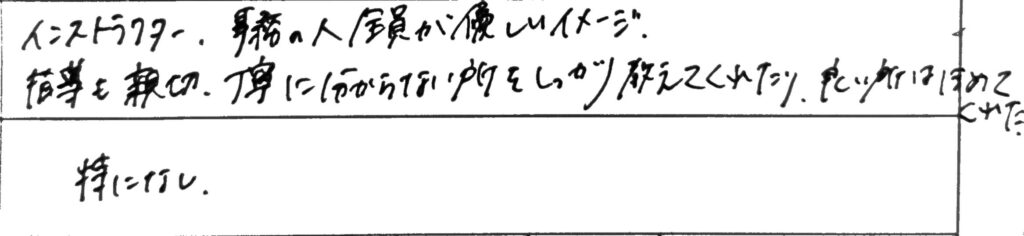 インストラクター、事務の人全員が優しいイメージ。
指導も親切、丁寧に分からない所をしっかり教えてくれたり、良い所はほめて
くれた。
特になし。